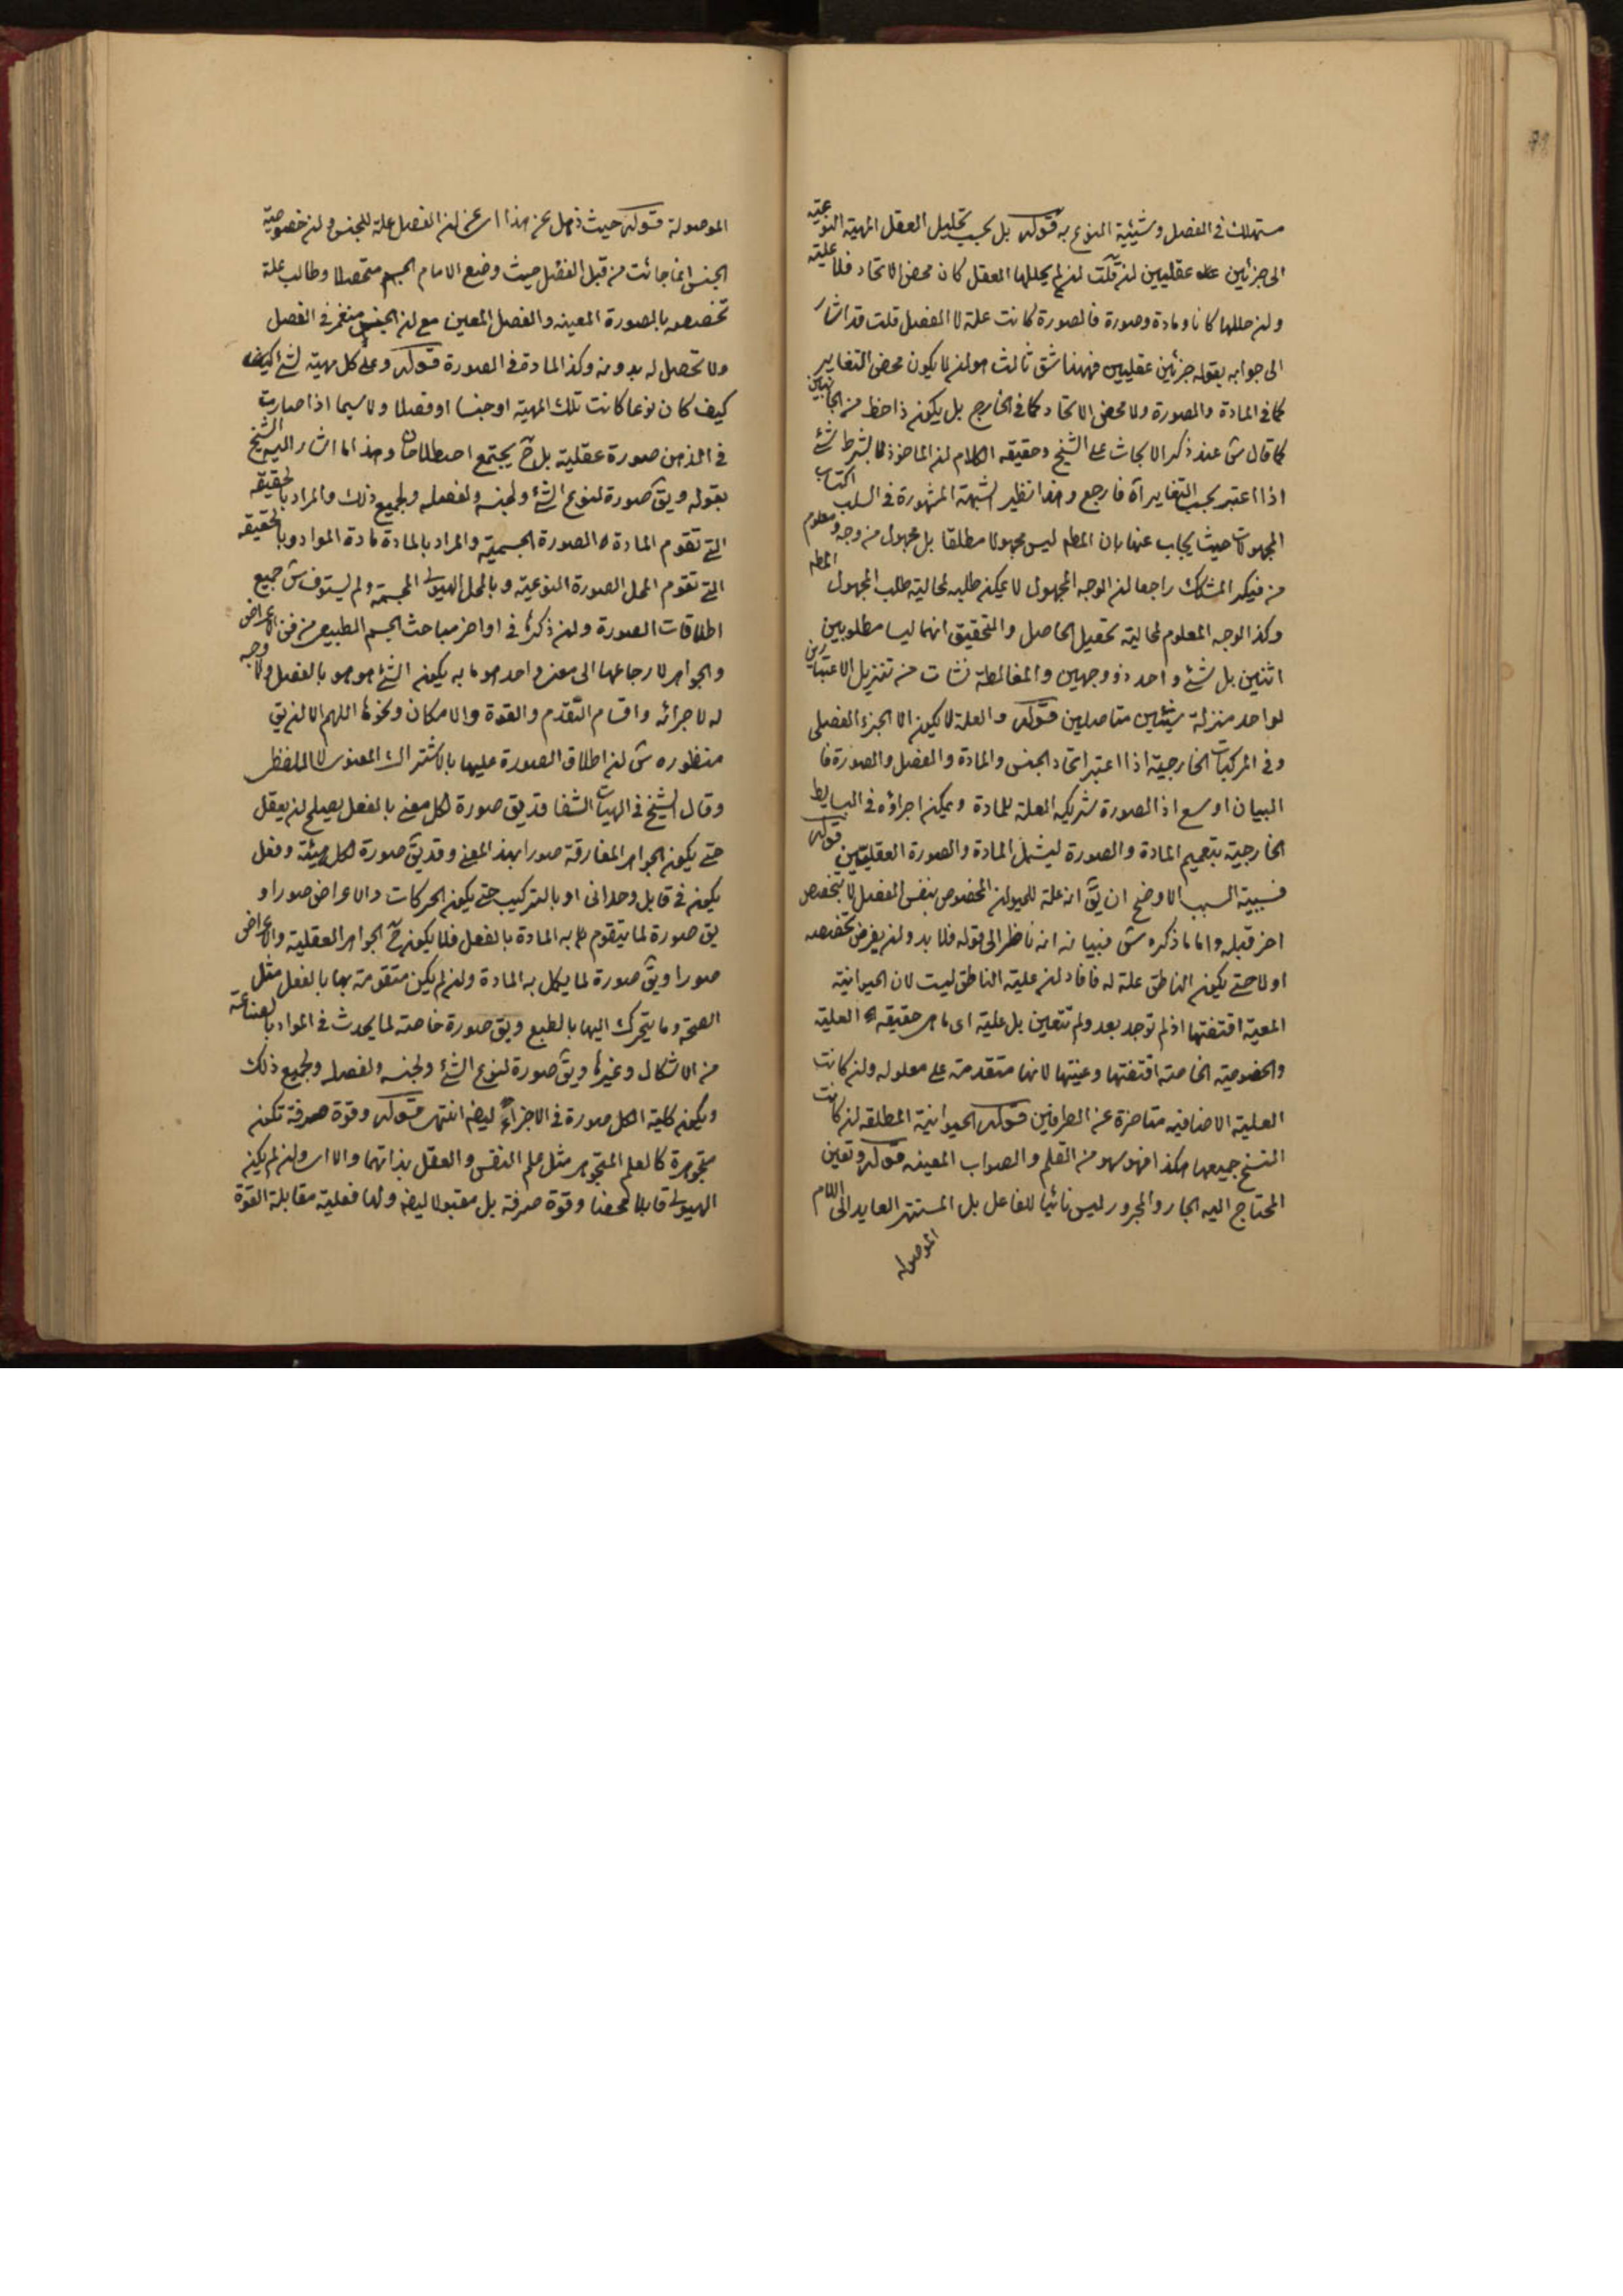 مستهلك فى الفصل وشيئية النوع به قوله بل بحسب تحليل العقل المهية النوعية
الى جزئين عقليين لن قلت لن لم يحللها العقل كان محض الاتحاد فلا علية
ولن حللها كانا ومادة وصورة فالصورة كانت علة لا الفصل قلت قد اشار
الى جوابه بقوله جزئين عقليين فههنا شق ثالث هو لن لا يكون محض التغاير
كما فى المادة والصورة ولا محض الاتحاد كما فى الخارج بل يكون ذا حظ من الجانبين
كما قال ش عند ذكر الابحاث على الشيخ وحقيقة الكلام لن الماخوذ لا بشرط شئ
اذا اعتبر بحسب التغاير آه فارجع وهذا نظير الشبهة المشهورة فى اكتساب
المجهولات حيث يجاب عنها بان المطم ليس مجهولا مطلقا بل مجهول من وجه ومعلوم
من فيكر المشكك راجعا لن الوجه المجهول لا يمكن طلبه لمحالية طلب المجهول المطم
وكذ الوجه المعلوم لمحالية تحصيل الحاصل والتحقيق انهما ليسا مطلوبين
اثنين بل شئ واحد ذو وجهين والمغالطة نشات من تنزيل الاعتبارين
لواحد منزلة شيئين متاصلين قوله والعلة لا يكون الا الجزء الفصلى
وفى المركبات الخارجية اذا اعتبر اتحاد الجنس والمادة والفصل والصورة فا
البيان اوسع اذ الصورة شريكة العلة للمادة ويمكن اجراؤه فى البسايط
الخارجية بتعميم المادة والصورة ليشمل المادة والصورة العقليتين قوله
فسببية السبب الاوضح ان يق انه علة للحيوان المخصوص بنفس الفصل لا بتخصص
اخر قبله واما ما ذكره ش فبيانه انه ناظر الى قوله فلا بد ولن يفرض تخصصه
اولا حتى يكون الناطق علة له فافاد لن علية الناطق ليست لان الحيوانية
المعينة اقتضتها اذ لم توجد بعد ولم تتعين بل علية اى ما هى حقيقة العلية
والخصوصية الخاصة اقتضتها وعينتها لانها متقدمة على معلوله ولن كانت
العلية الاضافية متاخرة عن الطرفين قوله الحيوانية المطلقة لن كانت
النسخ جميعها هكذا فهو سهو من القلم والصواب المعينة قوله وتعين
المحتاج اليه الجار والمجرور ليس نائبا للفاعل بل المستتر العايد الى اللام
الموصولة
الموصولة قوله حيث ذهل عن هذا اى عن لن الفصل علة للجنس ولن خصوصية
الجنس انما جائت من قبل الفصل حيث وضع الامام الجسم متحصلا وطالب علة
تخصصه بالصورة المعينة والفصل المعين مع لن الجنس منغمر فى الفصل
ولا تحصل له بدونه وكذ المادة فى الصورة قوله وعلى كل مهية لشئ
كيف كان نوعا كانت تلك المهية او جنسا او فصلا ولا سيما اذا صارت
فى الذهن صورة عقلية بل ح يجتمع اصطلاحان وهذا ما اشار اليه الشيخ
بقوله ويق صورة لنوع الشئ ولجنسه ولفصله ولجميع ذلك والمراد بالحقيقة
التى تقوم المادة الصورة الجسمية والمراد بالمادة مادة المواد وبالحقيقة
التى تقوم المحل الصورة النوعية وبالمحل الهيولى المجسمة ولم يستوف ش جميع
اطلاقات الصورة ولن ذكرها فى اواخر مباحث الجسم الطبيعى من فن الاعراض
والجواهر لارجاعها الى معنى واحد هو ما به يكون الشئ هو هو بالفعل ولا وجه
له لاجرائه واقسام التقدم والقوة والامكان ونحوها اللهم الا لن يق
منظوره ش لن اطلاق الصورة عليها بالاشتراك المعنوى لا اللفظى
وقال الشيخ فى الهيات الشفا قد يق صورة لكل معنى بالفعل يصلح لن يعقل
حتى يكون الجواهر المفارقة صورا بهذ المعنى وقد يق صورة لكل هيئة وفعل
يكون فى قابل وحدانى او بالتركيب حتى يكون الحركات والاعراض صورا و
يق صورة لما يتقوم به المادة بالفعل فلا يكون ح الجواهر العقلية والاعراض
صورا ويق صورة لما يكمل به المادة ولن لم يكن متقومة بها بالفعل مثل
الصحة وما يتحرك اليها بالطبع ويق صورة خاصة لما يحدث فى المواد بالصناعة
من الاشكال وغيرها ويق صورة لنوع الشئ ولجنسه ولفصله ولجميع ذلك
ويكون كلية الكل صورة فى الاجزاء ايضا انتهى قوله وقوة صرفة تكون
متجوهرة كالعلم المتجوهر مثل علم النفس والعقل بذاتهما والا اى ولن لم يكن
الهيولى قابلا محضا وقوة صرفة بل مقبولا ايضا ولها فعلية مقابلة القوة